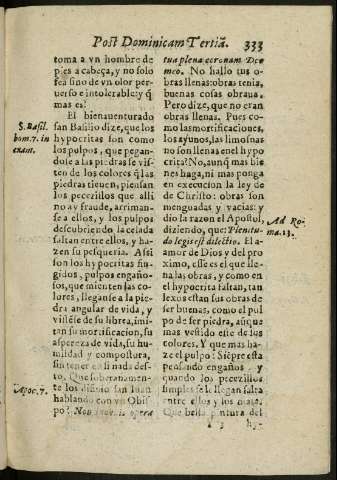 Post Dominicam Tertiã. 333
toma a vn hombre de
pies a cabeça, y no solo
sea sino de vn olor per-
uerso e intolerable: y q̃
mas es?
El bienauenturado
san Basilio dize, que los
hypocritas son como
los pulpos, que pegan-
dose a las piedras se vis-
ten de los colores q̃ las
piedras tienen, piensan
los pecezillos que alli
no ay fraude, arriman-
se a ellos, y los pulpos
descubriendo la celada
saltan entre ellos, y ha-
zen su pesqueria. Assi
son los hypocritas fin-
gidos, pulpos engaño-
sos, que mienten las co-
lores, lleganse a la pie-
dra angular de vida, y
vistẽse de su librea, imi-
tan su mortificacion, su
aspereza de vida, su hu-
mildad y compostura,
sin tener en si nada des-
to. Que soberanamen-
te los dibuxo san Iuan
hablando con vn Obis
po? Non inuenio opera
S. Basil.
hom. 7. in
exam.
Apoc. 7.
tua plena coram Deo
meo. No hallo tus o-
bras llenas: obras tenia,
buenas cosas obraua.
Pero dize, que no eran
obras llenas. Pues co-
mo las mortificaciones,
los ayunos, las limosnas
no son llenas en el hypo
crita? No, aunq̃ mas bie
nes haga, ni mas ponga
en execucion la ley de
de Christo: obras son
menguadas y vacias: y
dio la razon el Apostol,
diziendo, que: Plenitu-
do legis est dilectio. El a-
amor de Dios y del pro
ximo, esse es el que lle-
na las obras, y como en
el hypocrita faltan, tan
lexos estan sus obras de
ser buenas, como el pul
po de ser piedra, aũque
mas vestido este de los
colores. Y que mas ha-
ze el pulpo? Siẽpre esta
pensando engaños y
quando los pecezillos
simples se le llegan salta
entre ellos y los mata.
Que bella pintura del
hy-
Ad Ro-
ma. 13.